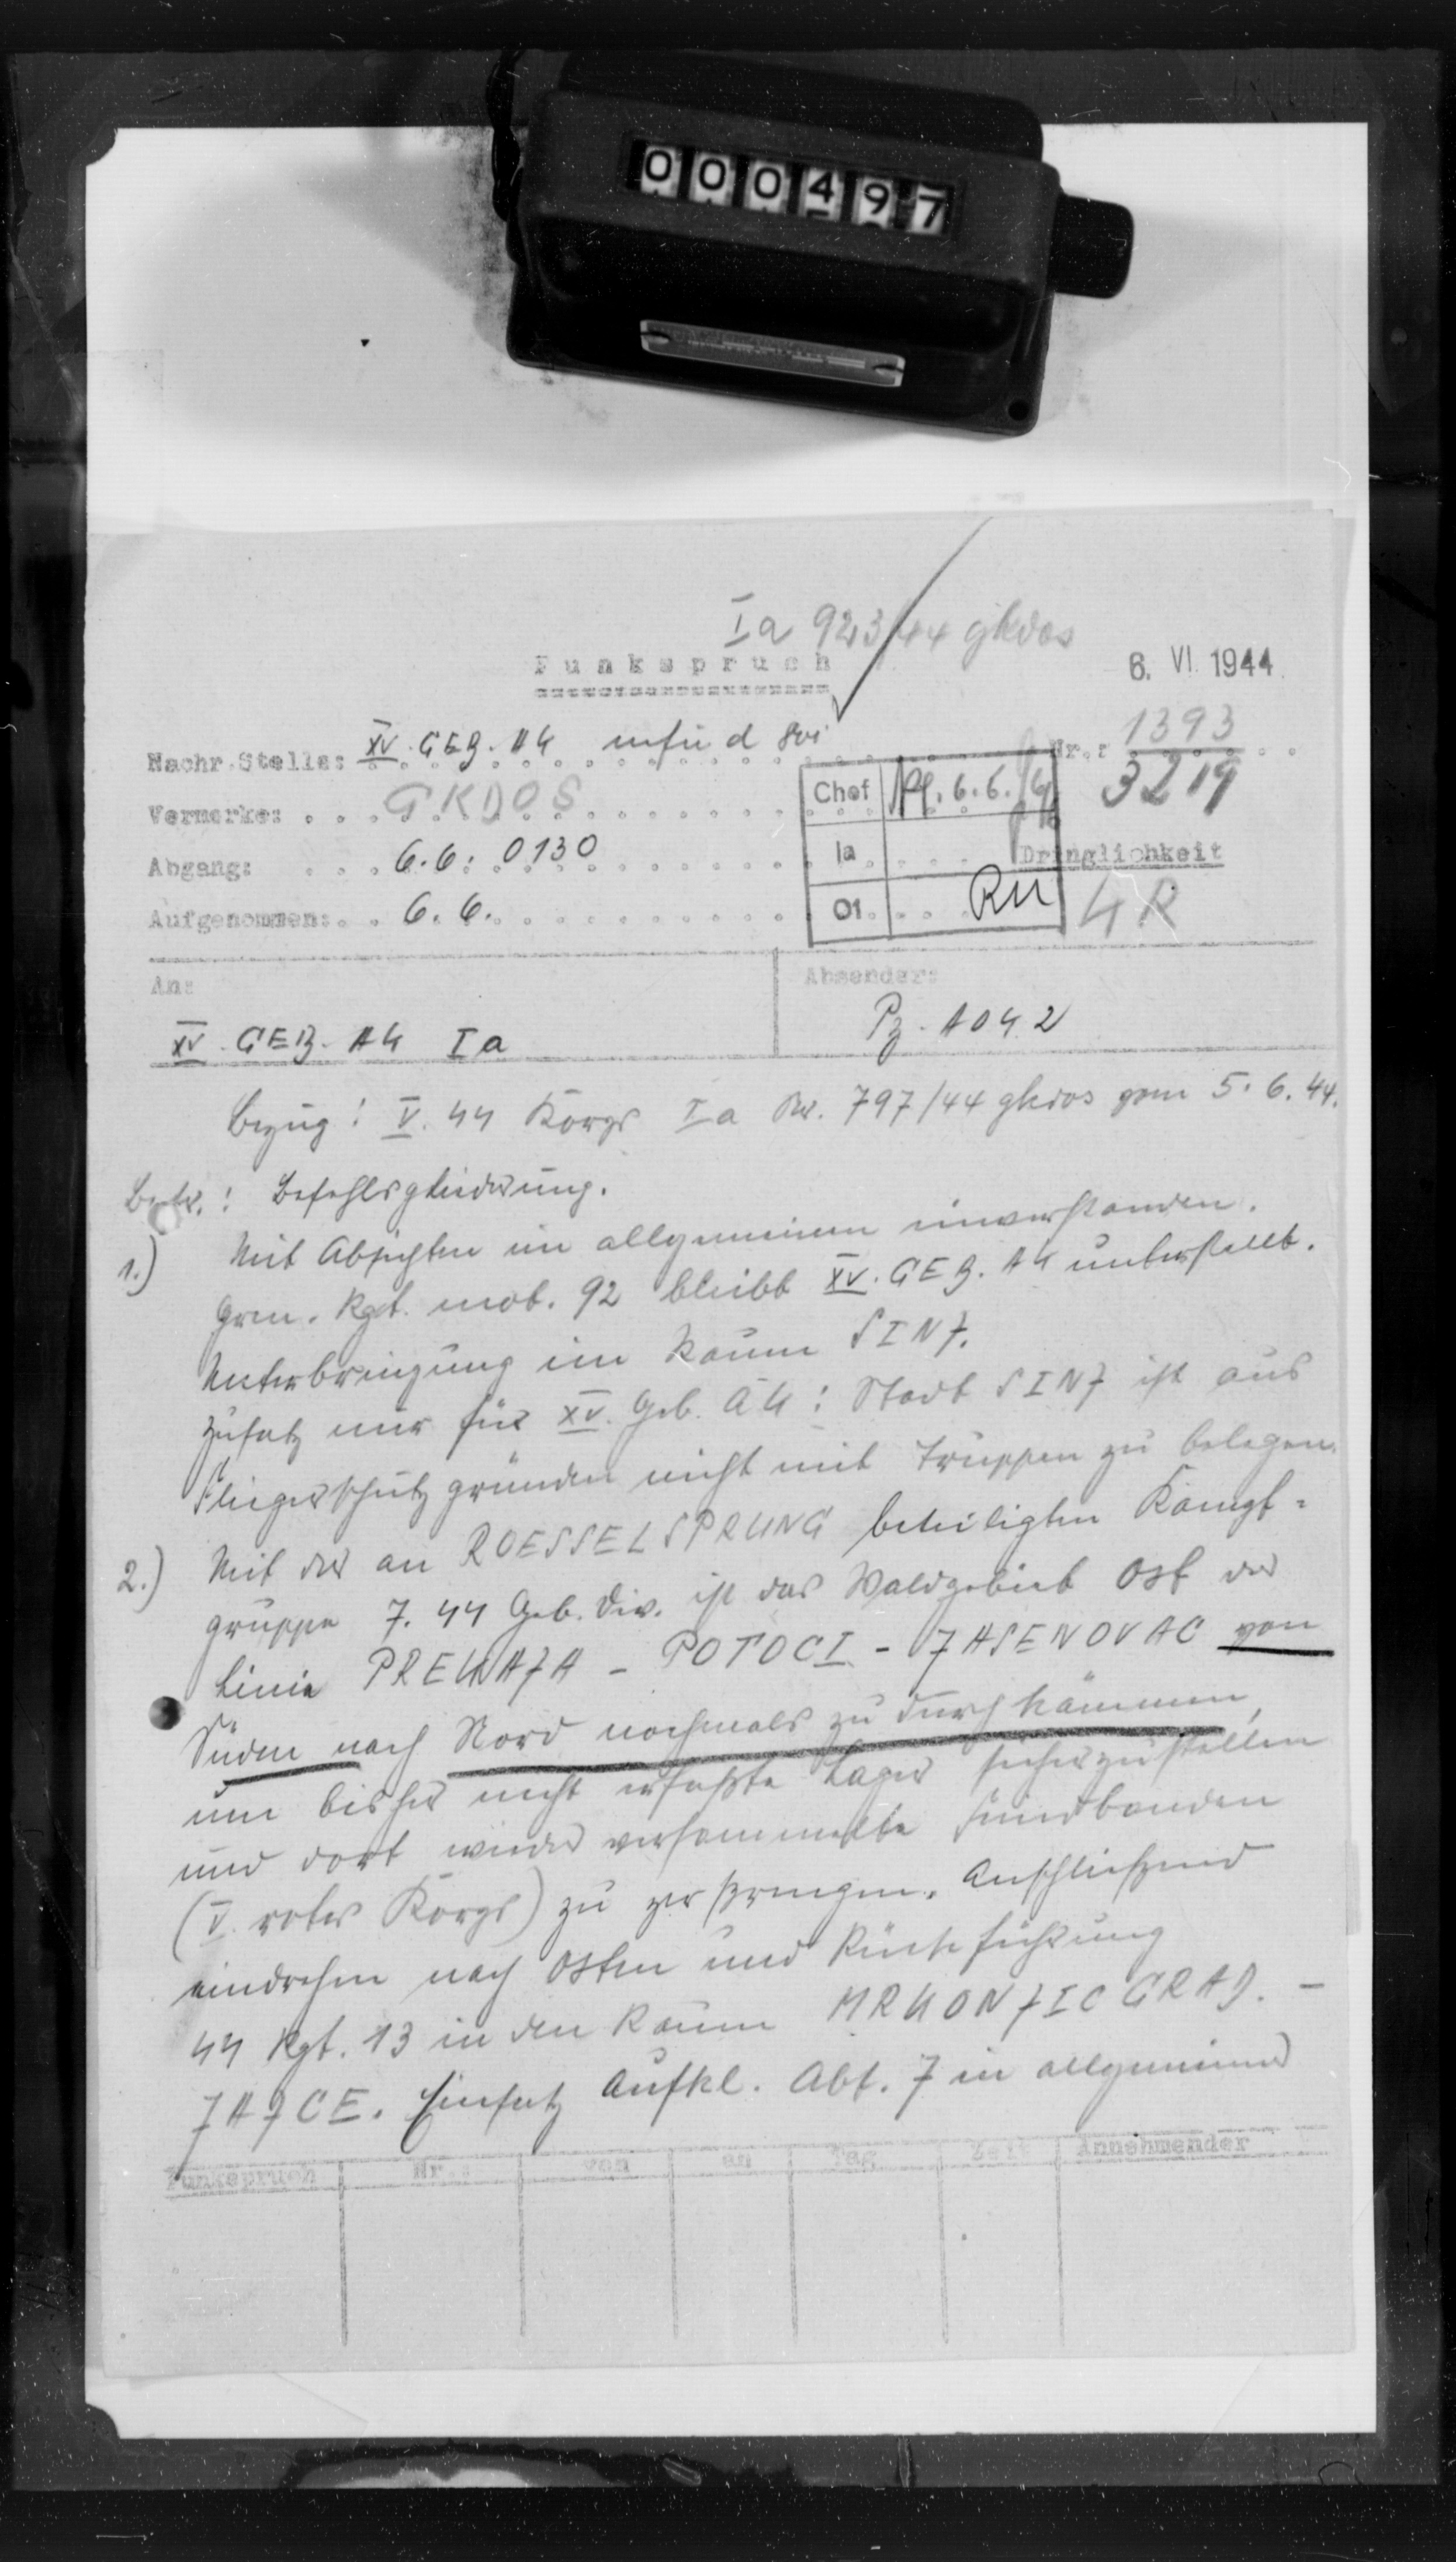 000497
Ia 923/44 gkdos
Funkspruch
6. VI. 1944
Nachr.Stelle: XV. GEB. AK
Nr.: 1393
3219
Vermerke: GKDOS
Chef 6.6.
Abgang: 6.6. 0130
Ia
Dringlichkeit
Aufgenommen: 6.6.
O1
KR
An:
Absender:
XV. GEB. AK Ia
Pz. AOK 2
Bezug: V. SS Korps Ia Nr. 797/44 gkdos vom 5.6.44.
Betr.: Befehlsgliederung.
1.) Mit Absichten im allgemeinen einverstanden.
Gren. Rgt. mot. 92 bleibt XV. GEB. AK unterstellt.
Unterbringung im Raum SINJ.
Zusatz nur für XV. Geb. AK: Stadt SINJ ist aus
Fliegerschutzgründen nicht mit Truppen zu belegen.
2.) Mit der an ROESSELSPRUNG beteiligten Kampf=
gruppe 7. SS Geb. Div. ist das Waldgebiet Ost der
Linie PREKAJA - POTOCI - JASENOVAC von
Süden nach Nord nochmals zu durchkämmen,
um bisher nicht erfaßte Lager sicherzustellen
und dort wieder versammelte Feindbanden
(V. rotes Korps) zu zersprengen. Anschließend
eindrehen nach Osten und Rückführung
SS Rgt. 13 in den Raum MRKONJICGRAD. -
JAJCE. Einsatz Aufkl. Abt. 7 in allgemeiner
Funkspruch Nr.: von an Tag Zeit Annehmender